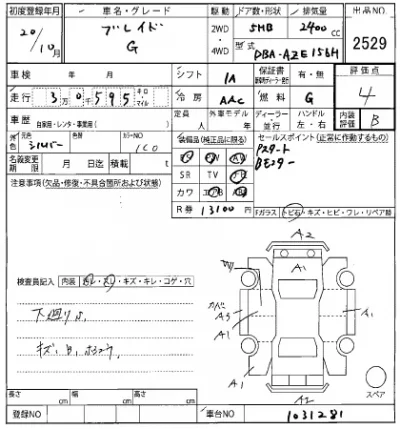 初度登録年月 車名・グレード 駆動 ドア数・形状 排気量 出品NO
20/10月 ブレイド G 2WD・4WD 5HB 2400cc 2529
型式 DBA-AZE156H
車検 年 月 シフト IA 保証書 有・無 評価点
走行 3万0千595 キロ・マイル 冷房 AAC 燃料 G 4
車歴 自家用・レンタ・事業用( ) 定員 人 外車モデル 年 ディーラー・並行 ハンドル 左・右 内装評価 B
外色 元色 シルバー 色替 カラーNO 1C0 装備品(純正品に限る) セールスポイント(正常に作動するもの)
名義変更期限 月 日迄 積載 t SR TV Pスタート
注意事項(欠品・修復・不具合箇所および状態) カワ エアB ABS Bモニター
R券 13100円 Fガラス トビ石・キズ・ヒビ・ワレ・リペア跡
A2
A1
検査員記入 内装 汚レ・スレ・キズ・キレ・コゲ・穴
カバー
A3 A1
A1
下廻りサ
キズ、凹、
A1 A1
A2 スペア
長さ cm 幅 cm 高さ cm
登録NO 車台NO 1031281